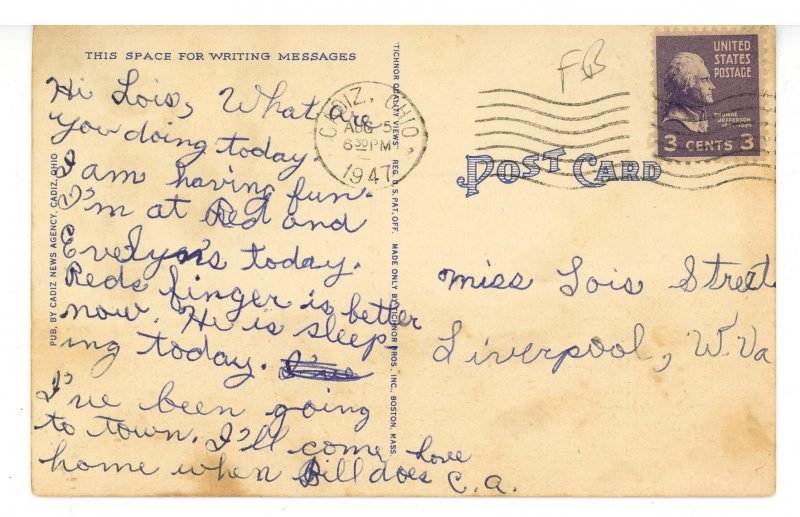 THIS SPACE FOR WRITING MESSAGES
Hi Lois, What are
you doing today.
I am having fun.
I'm at Red and
Evelyn's today.
Reds finger is better
now. He is sleep
ing today.
I've been going
to town. I'll come
home when Bill does
love
C.A.
PUB. BY CADIZ NEWS AGENCY, CADIZ, OHIO
TICHNOR QUALITY VIEWS REG. U. S. PAT. OFF. MADE ONLY BY TICHNOR BROS., INC. BOSTON, MASS.
CADIZ, OHIO.
AUG 5
6 30 PM
1947
FB
UNITED
STATES
POSTAGE
THOMAS
JEFFERSON
3 CENTS 3
POST CARD
Miss Lois Street
Liverpool, W. Va